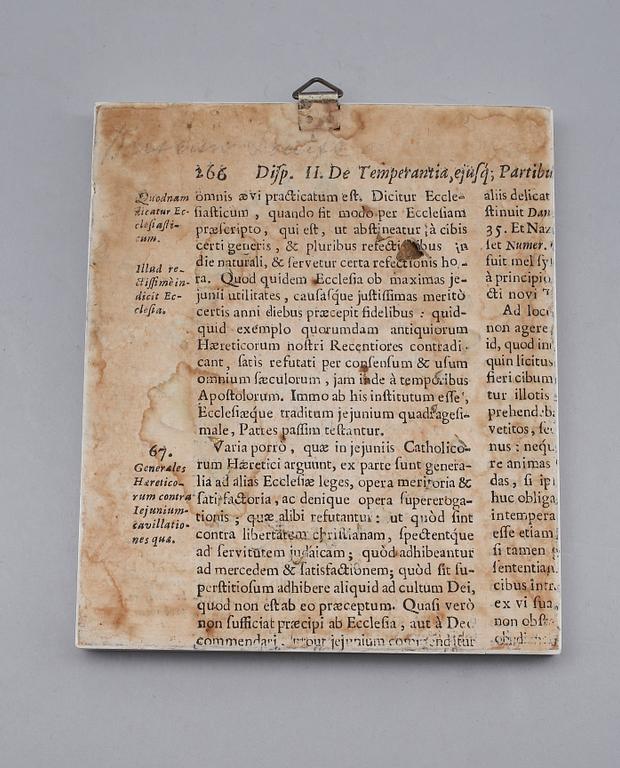 266 Disp. II. De Temperantia, ejusq; Partibu
Quodnam
dicatur Ec-
clesiasti-
cum.
Illud re-
ctissimè in-
dicit Ec-
clesia.
67.
Generales
Hæretico-
rum contra
Iejunium
cavillatio-
nes quæ.
omnis ævi practicatum est. Dicitur Eccle-
siasticum, quando fit modo per Ecclesiam
præscripto, qui est, ut abstineatur à cibis
certi generis, & pluribus refectionibus in
die naturali, & servetur certa refectionis ho-
ra. Quod quidem Ecclesia ob maximas je-
junii utilitates, causasque justissimas meritò
certis anni diebus præcepit fidelibus: quid-
quid exemplo quorumdam antiquorum
Hæreticorum nostri Recentiores contradi-
cant, satis refutati per consensum & usum
omnium sæculorum, jam inde à temporibus
Apostolorum. Immo ab his institutum esse,
Ecclesiæque traditum jejunium quadragesi-
male, Patres passim testantur.
Varia porrò, quæ in jejuniis Catholico-
rum Hæretici arguunt, ex parte sunt genera-
lia ad alias Ecclesiæ leges, opera meritoria &
satisfactoria, ac denique opera supereroga-
tionis; quæ alibi refutantur: ut quòd sint
contra libertatem christianam, spectentque
ad servitutem judaicam; quòd adhibeantur
ad mercedem & satisfactionem; quòd sit su-
perstitiosum adhibere aliquid ad cultum Dei,
quod non est ab eo præceptum. Quasi verò
non sufficiat præcipi ab Ecclesia, aut à Deo
commendari, prout jejunium commenditur
aliis delicat
stinuit Dan.
35. Et Naz
set Numer.
fuit mel sy
à principio
cti novi T
Ad loc
non agere
id, quod in
quin licitus
fieri cibum
tur illotis
prehend.b
vetitos, se
nus: neq
re animas
das, si ip
huc obliga
intempera
esse etiam
si tamen
sententian
cibus intr
ex vi sua
non obst